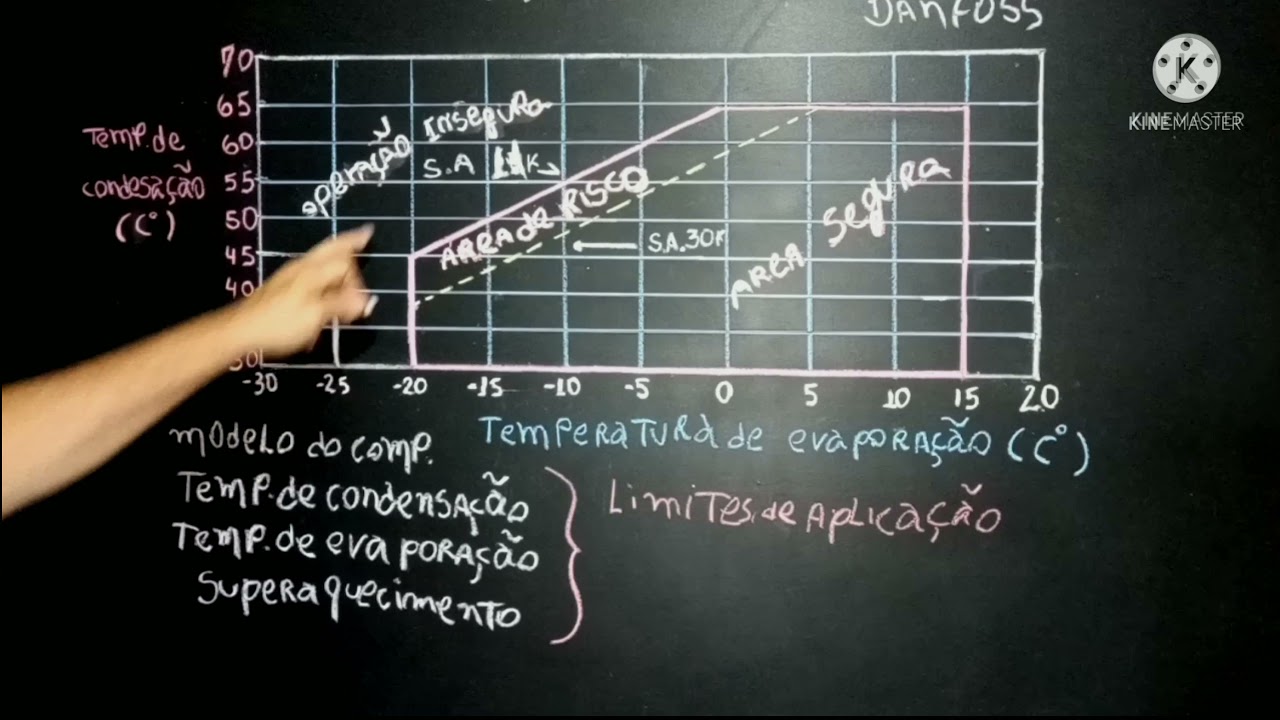 DANFOSS
KINEMASTER
70
65
60
55
50
45
40
30
Temp. de
condesação
(C°)
operação Insegura
S.A 11K
AREA de RISCO
S.A.30K
AREA SeguRA
-30 -25 -20 -15 -10 -5 0 5 10 15 20
Temperatura de evaporação (C°)
modelo do comp.
Temp. de condensação
Temp. de evaporação
Superaquecimento
Limites de Aplicação